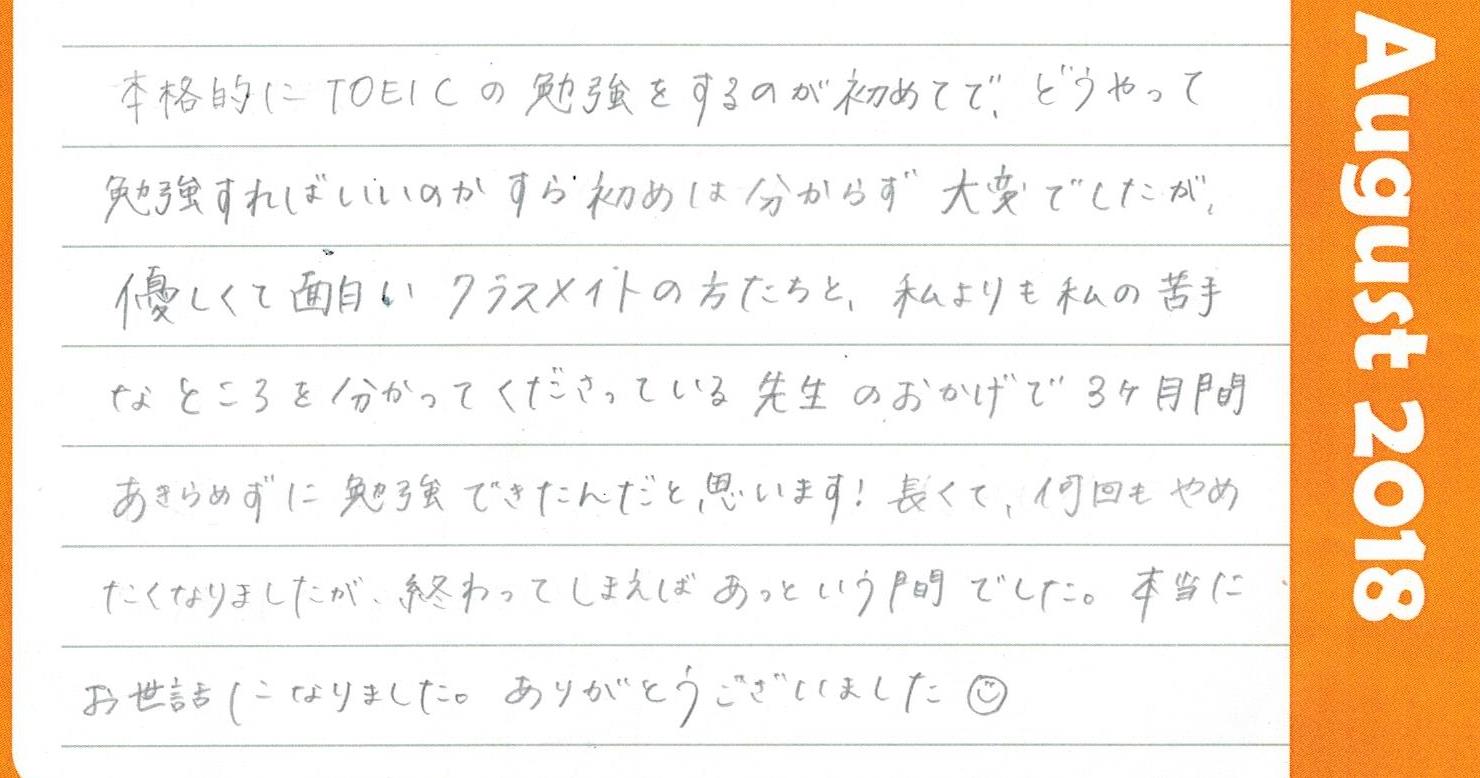 本格的にTOEICの勉強をするのが初めてで、どうやって
勉強すればいいのかすら初めは分からず大変でしたが、
優しくて面白いクラスメイトの方たちと、私よりも私の苦手
なところを分かってくださっている先生のおかげで3ヶ月間
あきらめずに勉強できたんだと思います！長くて、何回もやめ
たくなりましたが、終わってしまえばあっという間でした。本当に
お世話になりました。ありがとうございました☺
August 2018